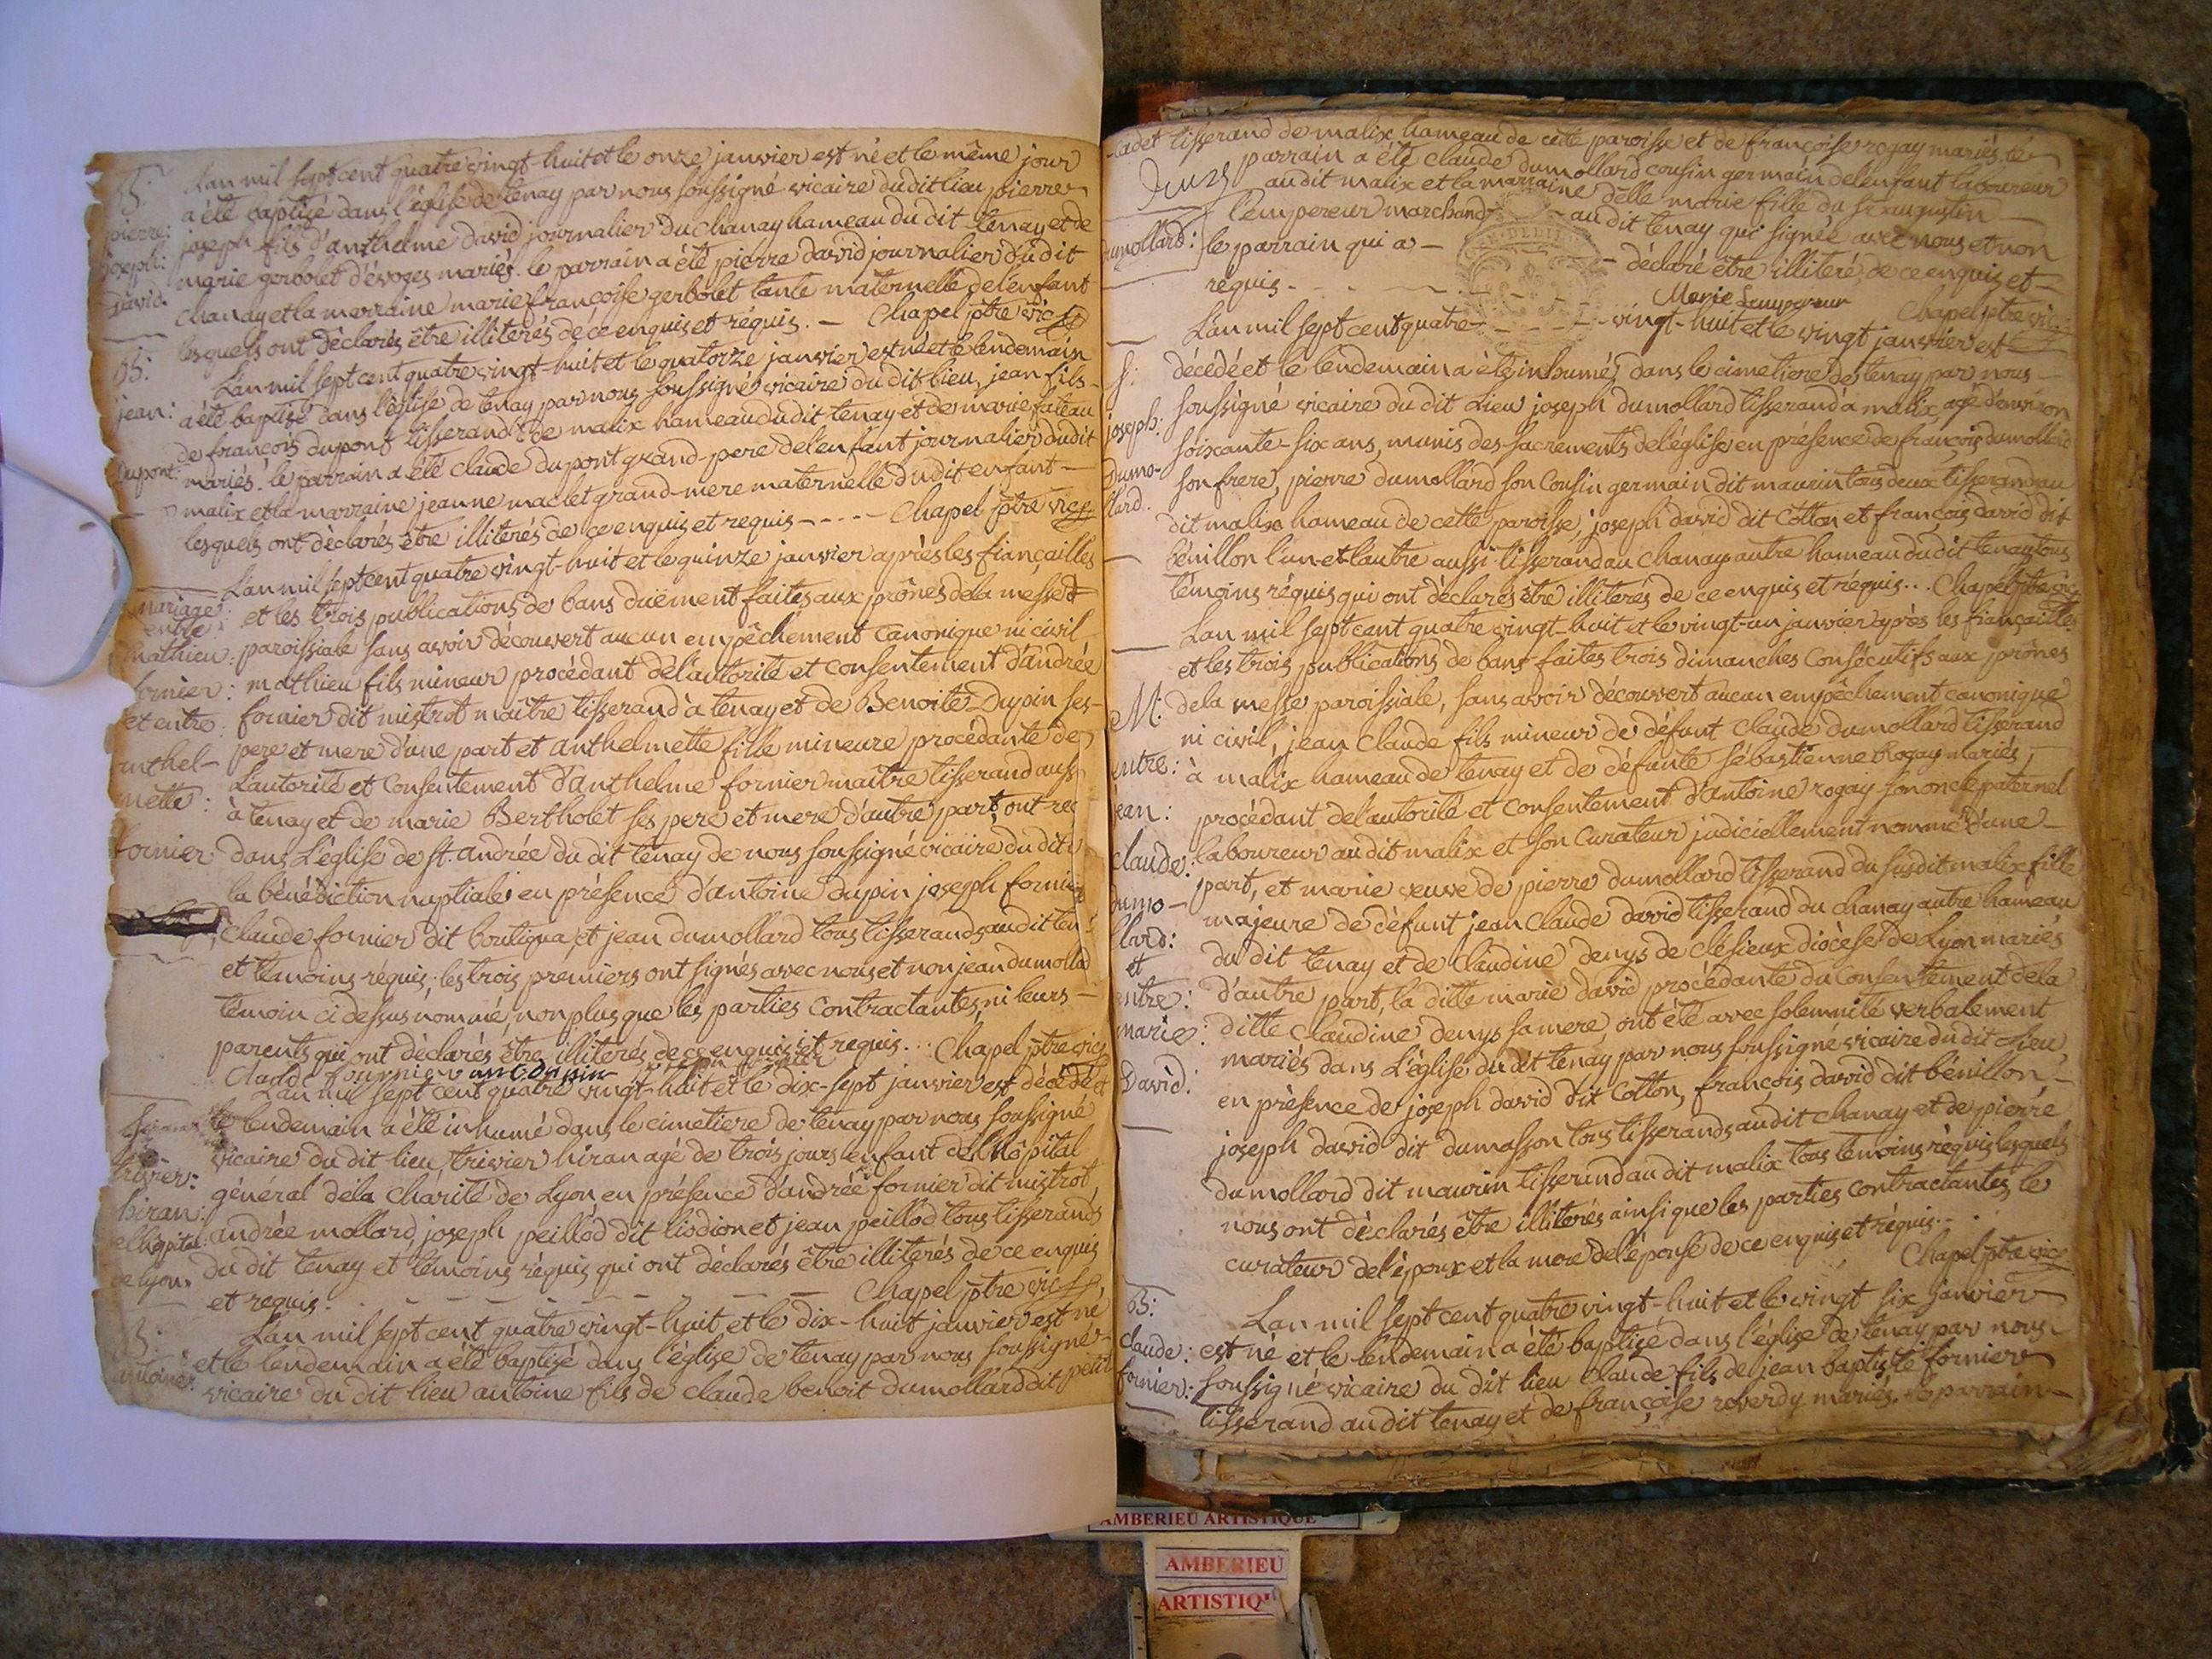 B:
pierre:
joseph:
David.
Lan mil sept cent quatre vingt-huit et le onze janvier est né et le même jour
a été baptisé dans l'église de tenay par nous soussigné vicaire du dit lieu pierre
joseph fils d'anthelme david journalier du chanay hameau du dit tenay et de
marie gerbolet d'évoges mariés. le parrain a été pierre david journalier du dit
chanay et la marraine marie françoise gerbolet tante maternelle de l'enfant
lesquels ont déclarés être illiterés de ce enquis et réquis. — Chapel ptre vic
B:
jean:
Dupont:
Lan mil sept cent quatre vingt-huit et le quatorze janvier est né et le lendemain
a été baptisé dans l'église de tenay par nous soussigné vicaire du dit lieu, jean fils
de françois dupont tisserand de malix hameau du dit tenay et de marie fateau
mariés. le parrain a été claude dupont grand-pere de l'enfant journalier du dit
malix et la marraine jeanne maclet grand-mere maternelle du dit enfant —
lesquels ont déclarés être illiterés de ce enquis et requis - - - - Chapel ptre vic
mariage:
entre:
mathieu:
fornier:
et entre:
anthel-
mette:
fornier
L'an mil sept cent quatre vingt-huit et le quinze janvier après les fiançailles
et les trois publications de bans duëment faites aux prônes de la messe
paroissiale sans avoir découvert aucun empêchement canonique ni civil
mathieu fils mineur procédant de l'autorité et consentement d'andrée
fornier dit mistrot maître tisserand à tenay et de Benoite Dupin ses
pere et mere d'une part et anthelmette fille mineure procédante de
L'autorité et Consentement d'anthelme fornier maître tisserand aussi
à tenay et de marie Bertholet ses pere et mere d'autre part, ont rec
dans L'église de st. andrée du dit tenay de nous soussigné vicaire du dit
la bénédiction nuptiale en présence d'antoine dupin joseph fornier
claude fornier dit boutigua et jean dumollard tous tisserands au dit ten
et témoins réquis; les trois premiers ont signés avec nous et non jean dumolla
témoin ci dessus nommé, non plus que les parties contractantes, ni leurs —
parents qui ont déclarés être illiterés de ce enquis et requis... Chapel ptre vic
Claude fournier ant. dupin
trivier:
hiran:
de l'hôpital
de lyon.
Lan mil sept cent quatre vingt-huit et le dix-sept janvier est décédé et
le lendemain a été inhumé dans le cimetiere de tenay par nous soussigné
vicaire du dit lieu, trivier hiran agé de trois jours enfant de l'hôpital
général de la charité de Lyon en présence d'andrée fornier dit mistrot
andrée mollard, joseph peillod dit liodion et jean peillod tous tisserands
du dit tenay et témoins réquis qui ont déclarés être illiterés de ce enquis
et requis. Chapel ptre vic
B:
antoine:
Lan mil sept cent quatre vingt-huit et le dix-huit janvier est né
et le lendemain a été baptisé dans l'église de tenay par nous soussigné
vicaire du dit lieu antoine fils de claude benoit dumollard dit petit
cadet tisserand de malix hameau de cette paroisse et de françoise rogay mariés. le
parrain a été claude dumollard cousin germain de l'enfant laboureur
au dit malix et la marraine delle marie fille du sr augustin —
l'empereur marchand - au dit tenay qui signée avec nous et non
dumollard: le parrain qui a — - déclaré être illiteré, de ce enquis et —
réquis - - - Marie Lempereur Chapel ptre vic
S:
joseph:
Dumo-
llard.
L'an mil sept cent quatre - - - - vingt-huit et le vingt janvier est
décédé et le lendemain a été inhumé dans le cimetiere de tenay par nous —
soussigné vicaire du dit Lieu joseph dumollard tisserand à malix, agé d'environ
soixante-six ans, munis des sacrements de l'église en présence de françois dumollard
son frere, pierre dumollard son Cousin germain dit maurin tous deux tisserands au
dit malix hameau de cette paroisse, joseph david dit Cotton et françois david dit
bénillon l'un et l'autre aussi tisserand au chanay autre hameau du dit tenay tous
témoins réquis qui ont déclarés être illiterés de ce enquis et réquis... Chapel ptre vic
M:
entre:
jean:
claude:
dumo-
llard:
et
entre:
marie:
David:
Lan mil sept cent quatre vingt-huit et le vingt-un janvier après les fiançailles
et les trois publications de bans faites trois dimanches Consécutifs aux prônes
de la messe paroissiale, sans avoir découvert aucun empêchement canonique
ni civil, jean claude fils mineur de défunt claude dumollard tisserand
à malix hameau de tenay et de défunte sébastienne Rogay mariés,
procédant de l'autorité et consentement d'antoine rogay son oncle paternel
laboureur au dit malix et son Curateur judiciellement nommé d'une —
part, et marie veuve de pierre dumollard tisserand du susdit malix fille
majeure de défunt jean claude david tisserand du chanay autre hameau
du dit tenay et de claudine denys de clésieux diocèse de Lyon mariés
d'autre part, la ditte marie david procédante du Consentement de la
ditte claudine denys sa mere, ont été avec solemnité verbalement
mariés dans L'église du dit tenay par nous soussigné vicaire du dit Lieu,
en présence de joseph david dit Cotton, françois david dit bénillon
joseph david dit dumasson tous tisserands au dit chanay et de pierre
dumollard dit maurin tisserand au dit malix tous témoins réquis lesquels
nous ont déclarés être illiterés ainsi que les parties contractantes, le
curateur de l'époux et la mere de l'épouse de ce enquis et réquis.
Chapel ptre vic
B:
claude:
fornier:
Lan mil sept cent quatre vingt-huit et le vingt six janvier
est né et le lendemain a été baptisé dans l'église de tenay par nous
soussigné vicaire du dit lieu claude fils de jean baptiste fornier
tisserand au dit tenay et de françoise reverdy mariés. le parrain —
AMBERIEU ARTISTIQUE
AMBERIEU
ARTISTIQU